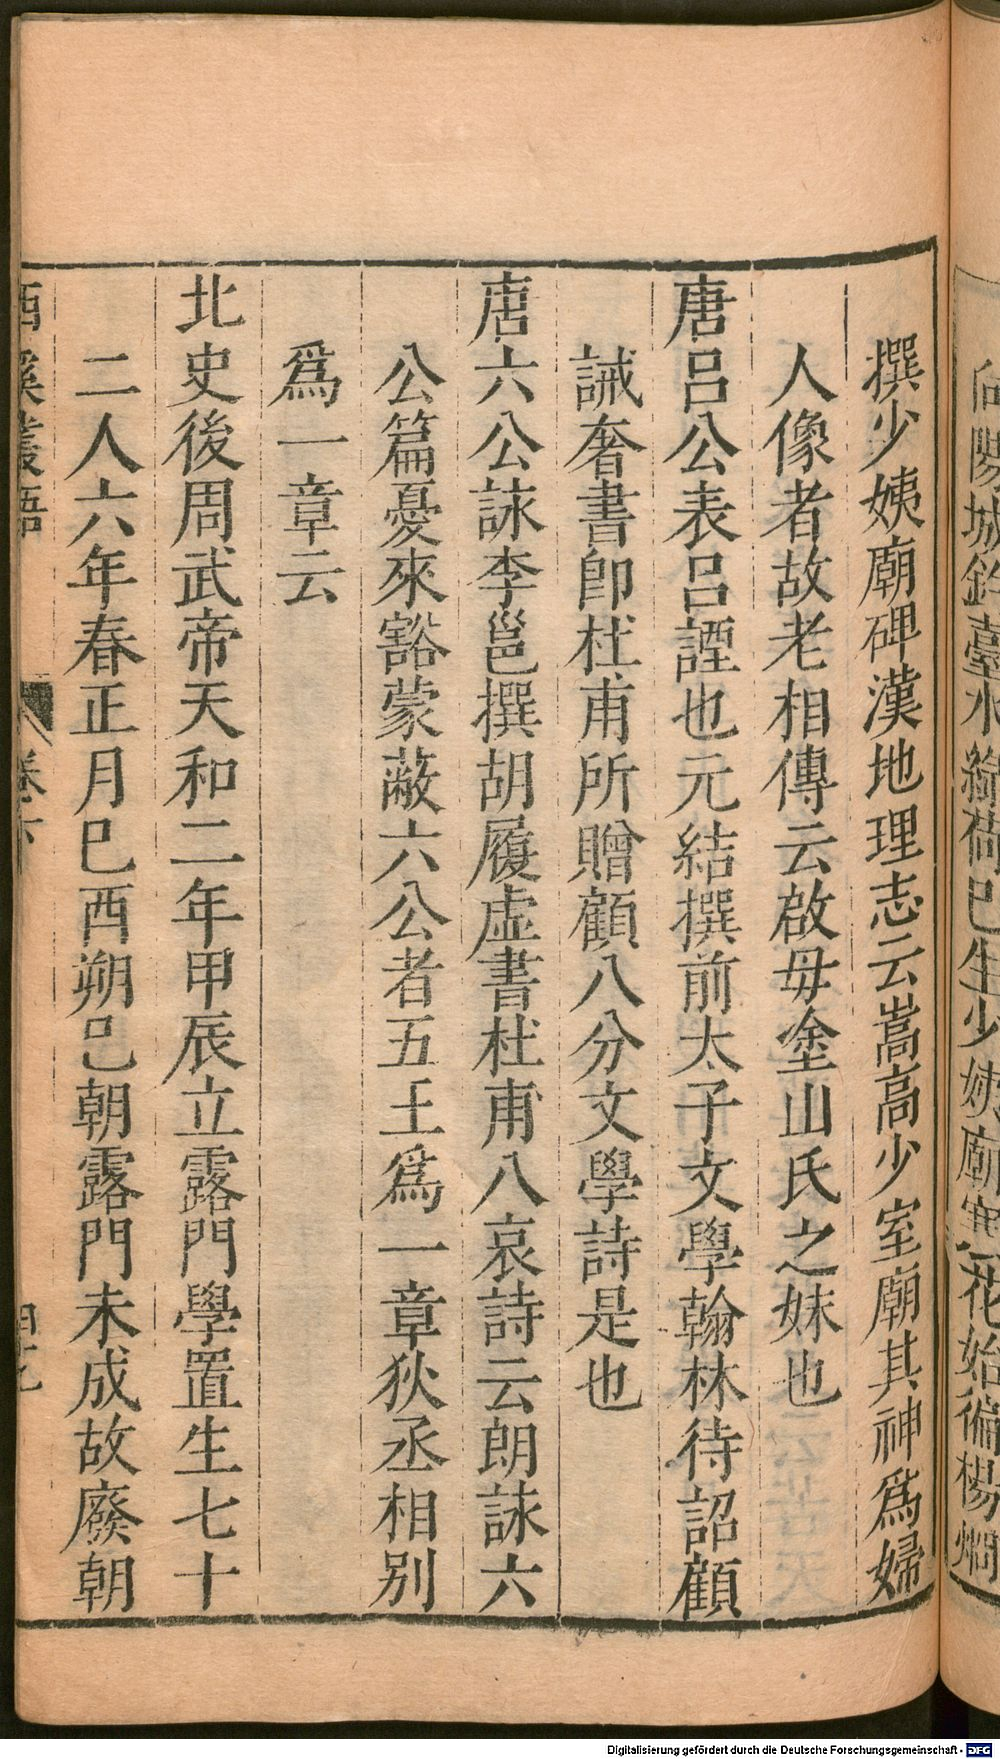 向陽城鈞臺水綺荷已生少姨廟寒花始徧楊炯
撰少姨廟碑漢地理志云嵩高少室廟其神爲婦
人像者故老相傳云啟母塗山氏之妹也
唐呂公表呂諲也元結撰前太子文學翰林待詔顧
誡奢書卽杜甫所贈顧八分文學詩是也
唐六公詠李邕撰胡履虛書杜甫八哀詩云朗詠六
公篇憂來豁蒙蔽六公者五王爲一章狄丞相別
爲一章云
北史後周武帝天和二年甲辰立露門學置生七十
二人六年春正月巳酉朔已朝露門未成故廢朝
西溪叢語 卷下
Digitalisierung gefördert durch die Deutsche Forschungsgemeinschaft - DFG